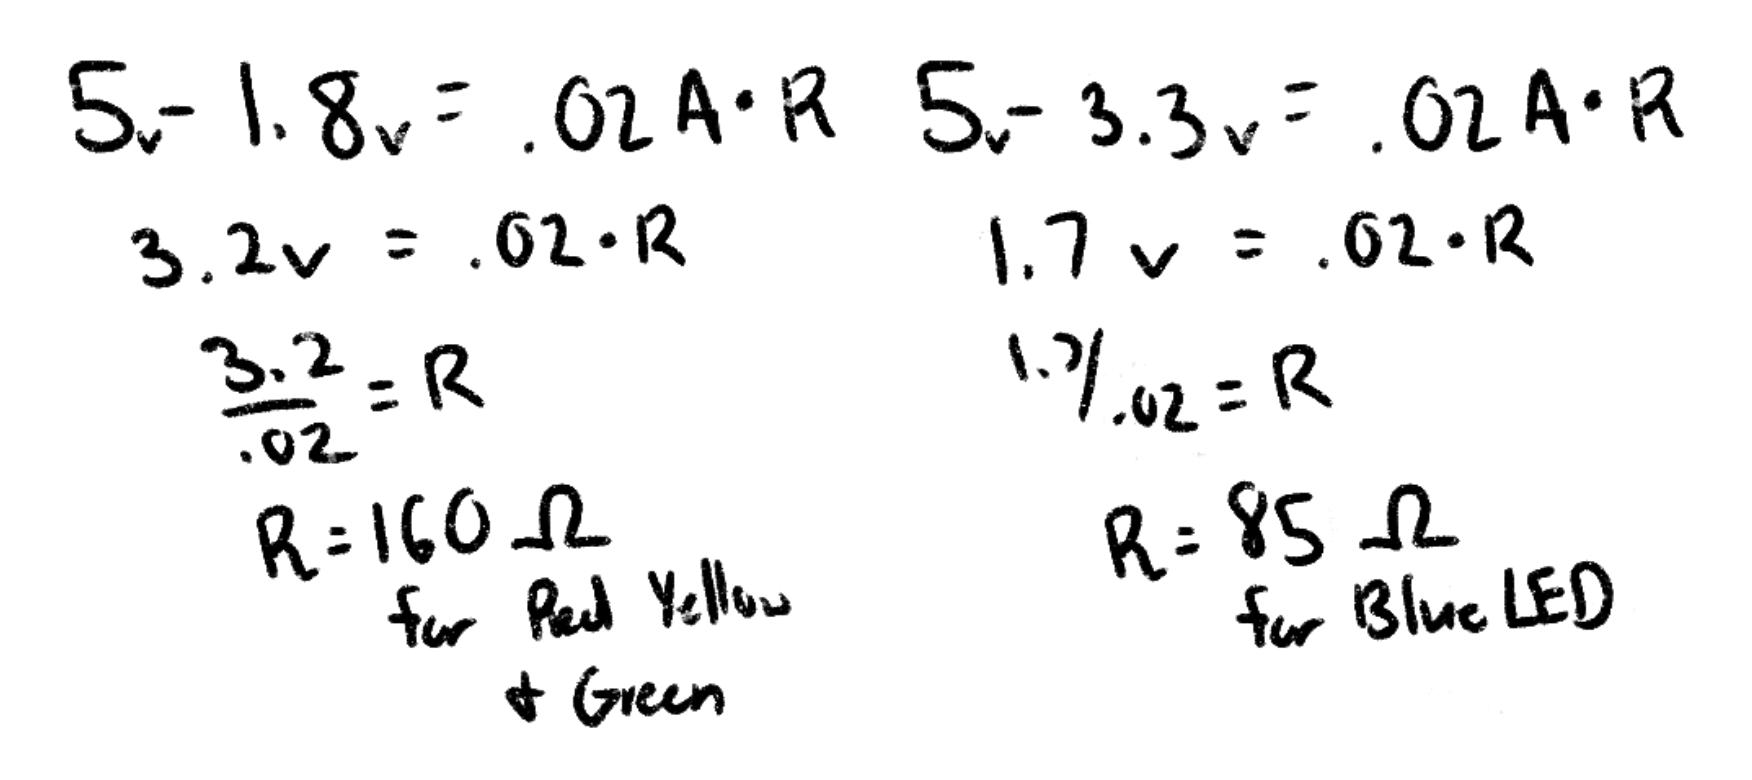 5v - 1.8v = .02 A • R
3.2v = .02 • R
3.2/.02 = R
R = 160 Ω
for Red Yellow
+ Green
5v - 3.3v = .02 A • R
1.7 v = .02 • R
1.7/.02 = R
R = 85 Ω
for Blue LED